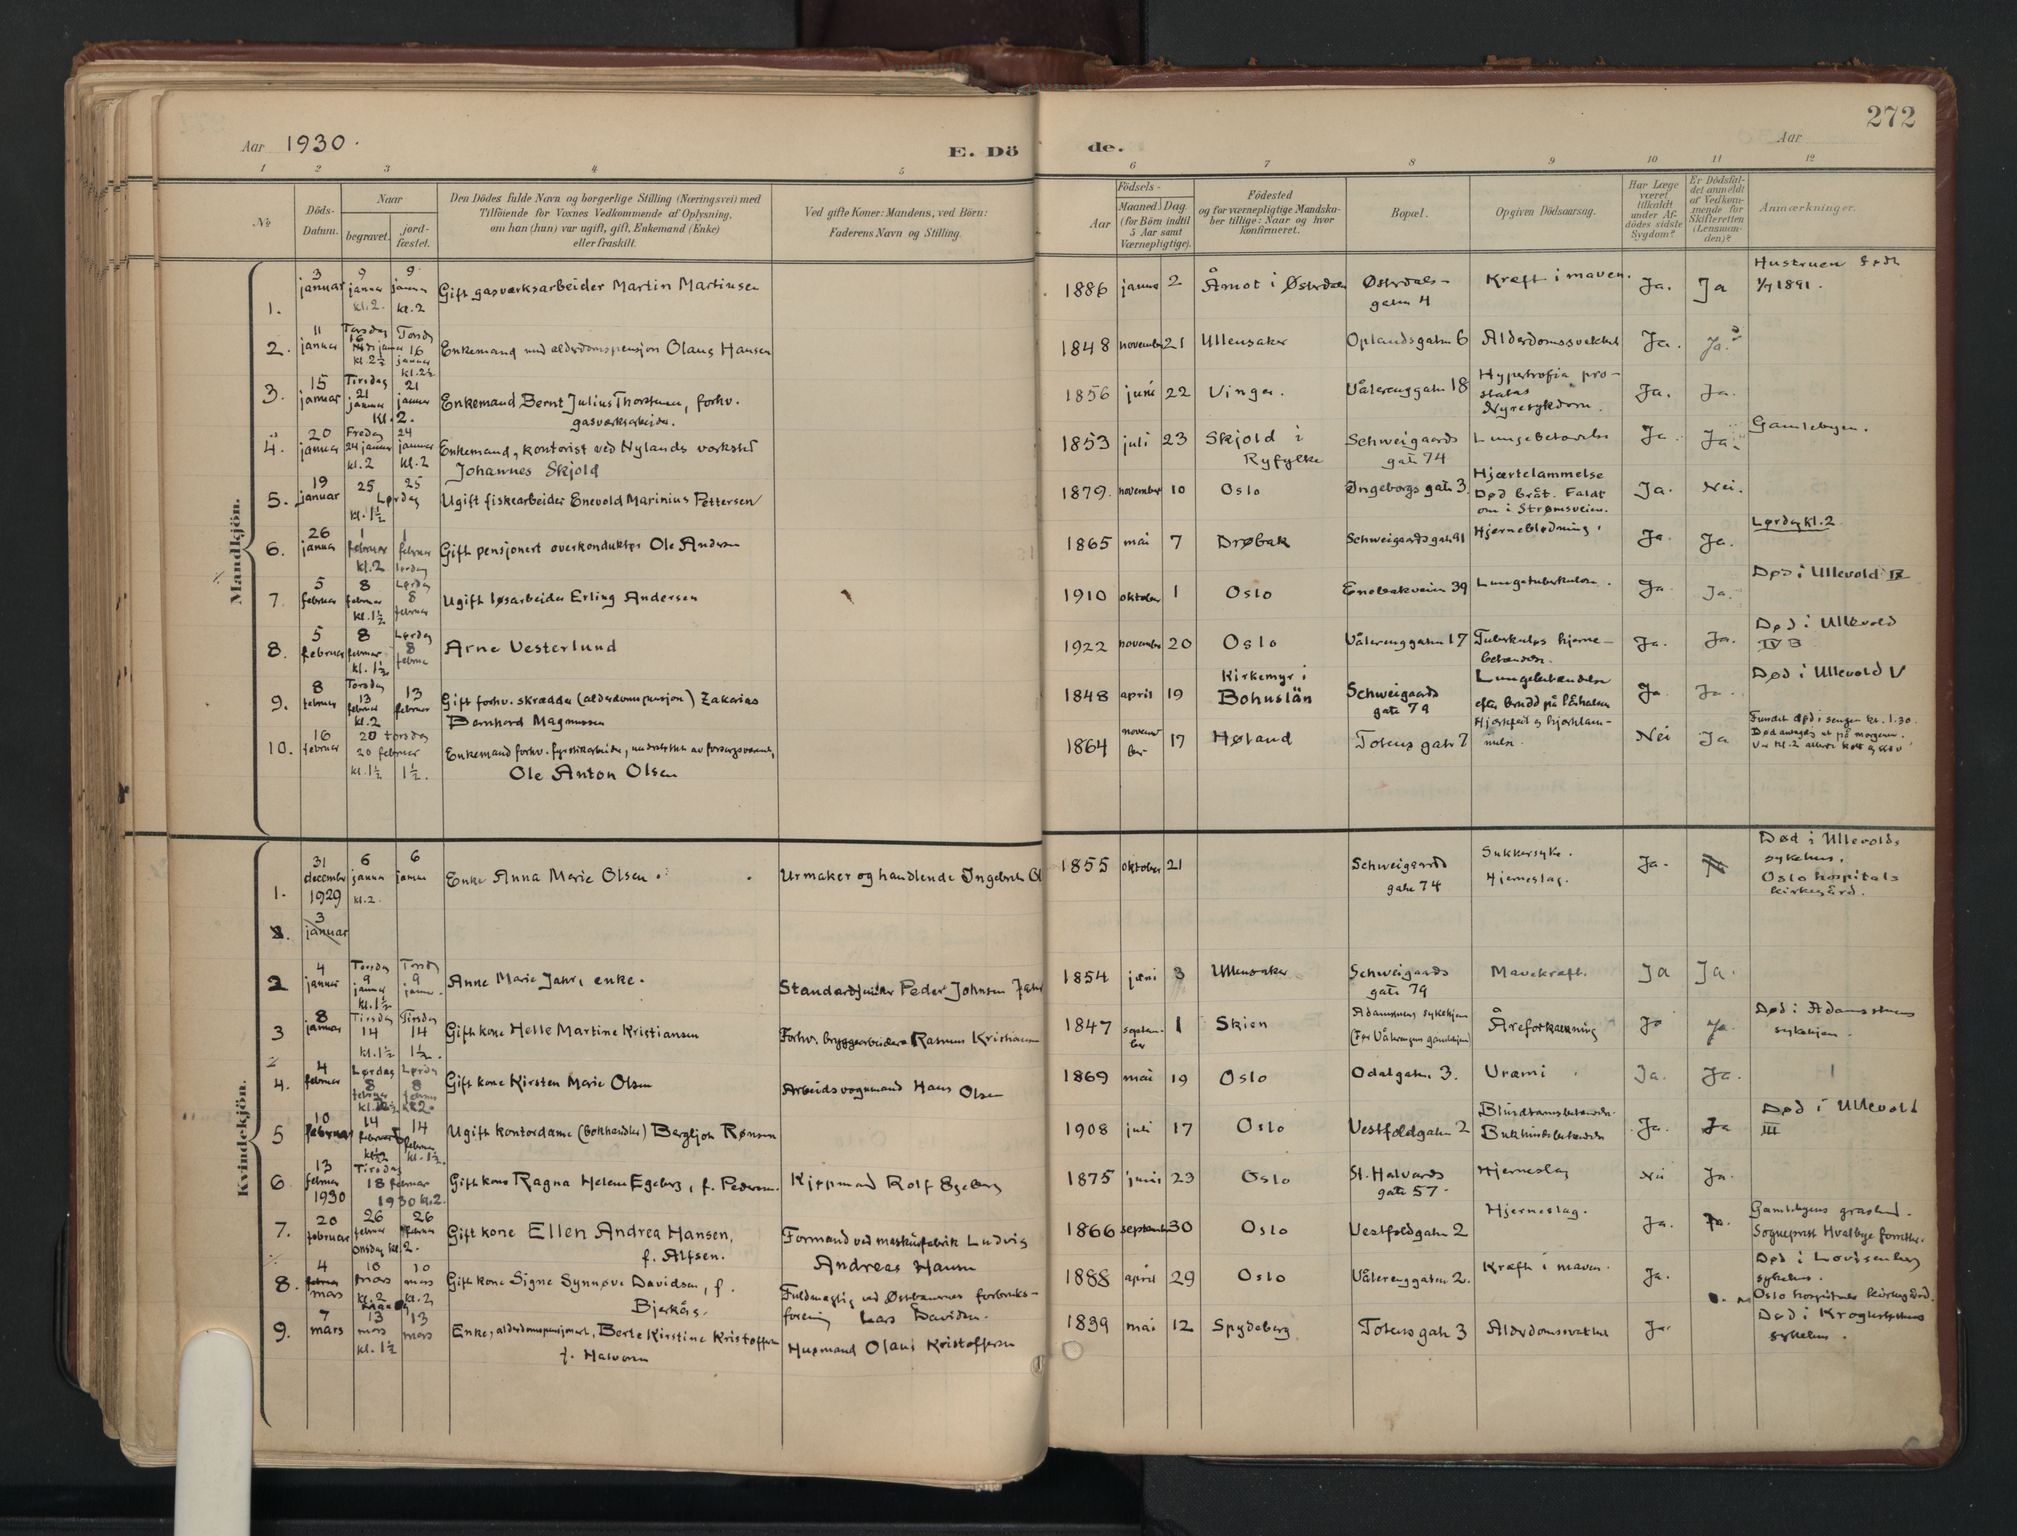 272
Aar 1930.
E. Dö
de.
Aar
1 2 3 4 5 6 7 8 9 10 11 12
№
Döds-
Datum.
Naar
begravet.
jord-
fæstet.
Den Dödes fulde Navn og borgerlige Stilling (Næringsvei) med
Tilföiende for Voxnes Vedkommende af Oplysning,
om han (hun) var ugift, gift, Enkemand (Enke)
eller fraskilt.
Ved gifte Koner: Mandens, ved Börn:
Faderens Navn og Stilling.
Aar
Födsels-
Maaned Dag
(for Börn indtil
5 Aar samt
Værnepligtige).
Födested
og for værnepligtige Mandska-
ber tillige: Naar og hvor
konfirmeret.
Bopæl.
Opgiven Dödsaarsag.
Har Læge
været
tilkaldt
under Af-
dödes sidste
Sygdom?
Er Dödsfal-
det anmeldt
af Vedkom-
mende for
Skifteretten
(Lensman-
den)?
Anmærkninger.
Mandkjön.
1. 3 januar 9 januar kl. 2. 9 januar kl. 2 Gift gasværksarbeider Martin Martinsen 1886 januar 2 Åmot i Østerdalen Østerdals-
gaten 4 Kræft i maven. Ja. Ja Hustruen født
1/7 1891.
2. 11 januar Torsdag 16 januar kl. 2½ Torsdag 16 januar kl. 2½ Enkemand med alderdomspensjon Olaus Hansen 1848 november 21 Ullensaker Oplandsgaten 6 Alderdomssvakhet Ja. Ja.
3. 15 januar Tirsdag 21 januar kl. 2. 21 januar Enkemand Bernt Julius Thorstensen, forhv.
gasværksarbeider. 1856 juni 22 Vinger. Vålerenggaten 18 Hypertrofia pro-
statas
Nyresykdom. Ja. Ja.
4. 20 januar Fredag 24 januar kl. 2 24 januar kl. 2 Enkemand, kontorist ved Nylands verksted
Johannes Skjold 1853 juli 23 Skjold i
Ryfylke Schweigaards
gate 74 Lungebetændelse Ja. Ja. Gamlebyen.
5. 19 januar 25 Lørdag kl. 1½ 25 Ugift fiskearbeider Enevold Marinius Pettersen 1879. november 10 Oslo Ingeborgs gate 3. Hjærtelammelse
Død bråt. Faldt
om i Strømsveien. Ja. Nei.
6. 26 januar 1 februar kl. 2 1 februar lørdag Gift pensjonert overkonduktør Ole Andersen 1865 mai 7 Drøbak Schweigaards gate 91 Hjerneblødning. Ja. Ja. Lørdag kl. 2
7. 5 februar 8 februar kl. 1½ Lørdag 8 februar Ugift løsarbeider Erling Andersen 1910 oktober 1 Oslo Enebakveien 39 Lungetuberkulose. Ja. Ja. Død i Ullevold IX
8. 5 februar 8 februar kl. 1½ Lørdag 8 februar Arne Vesterlund 1922 november 20 Oslo Vålerenggaten 17 Tuberkuløs hjerne-
betændelse. Ja. Ja. Død i Ullevold
IV B
9. 8 februar Torsdag 13 februar kl. 2 13 februar Gift forhv. skrædder (alderdomspensjon) Zakarias
Bernhard Magnussen 1848 april 19 Kirkemyr i
Bohuslän Schweigaards
gate 79 Lungebetændelse
efter brudd på lårhalsen Ja. Ja. Død i Ullevold V
10. 16 februar 20 torsdag 20 februar kl. 1½ 1½. Enkemand forhv. fyrstikarbeider, understøttet av forsorgsvesenet,
Ole Anton Olsen 1864 novem-
ber 17 Høland Totens gate 7 Hjertefeil og hjertelam-
melse. Nei Ja Fundet død i sengen kl. 1.30.
Død antagelig ut på morgenen.
Kvindekjön.
1. 31 december 1929 6 januar kl. 2. 6 januar Enke Anna Marie Olsen. Urmaker og handlende Ingebret Ol 1855 oktober 21 Schweigaards
gate 74 Sukkersyke.
Hjerneslag. Ja. Død i Ullevolds
sykehus.
Oslo hospitals
kirkegård.
3 januar
2 4 januar Torsdag 9 januar kl. 1½ Torsdag 9 januar. Anne Marie Jahr, enke. Standartjunker Peder Johnsen Jahr 1854 juni 3 Ullensaker Schweigaards
gate 79 Mavekræft. Ja Ja.
3 8 januar Tirsdag 14 kl. 1½ Tirsdag 14 1½. Gift kone Helle Martine Kristiansen Forhv. bryggearbeider Rasmus Kristiansen 1847 septem-
ber 1 Skien Adamstuens sykehjem
(før Vålerengens gamlehjem) Åreforkalkning Ja Ja. Død i Adamstuens
sykehjem.
4. 4 februar Lørdag 8 februar Lørdag 8 februar kl. 2. Gift kone Kirsten Marie Olsen Arbeidsvognmand Hans Olsen 1869 mai 19 Oslo Odalsgaten 3. Uræmi Ja. Ja.
5 10 februar 14 februar 14 februar kl. 1½. Ugift kontordame (bokhandler) Bergljot Rønsen 1908 juli 17 Oslo Vestfoldgaten 2 Blindtarmsbetændelse.
Bukhindebetændelse Ja. Ja Død i Ullevold
III
6. 13 februar 1930 Tirsdag 18 februar 1930 kl. 2. Gift kone Ragna Helene Egeberg, f. Pedersen. Kjøpmand Rolf Egeberg 1875 juni 23 Oslo St. Halvards
gate 57. Hjerneslag Nei Ja.
7. 20 februar 26 februar Onsdag kl. 2. 26 februar Gift kone Ellen Andrea Hansen,
f. Alfsen. Formand ved maskinfabrik Ludvig
Andreas Hansen 1866 september 30 Oslo Vestfoldgaten 2 Hjerneslag. Ja. Ja. Gamlebyens gravlund.
Sogneprest Hvalbye forretter.
8. 4 mars 10 mars kl. 2 10 mars kl. 2 Gift kone Signe Synnøve Davidsen, f.
Bjerkås. Fuldmægtig ved Østbanernes forbruks-
forening Lars Davidsen. 1888 april 29 Oslo Vålerenggaten 2. Kræft i maven. Ja. Død i Lovisenberg
sykehus.
Oslo hospitals kirkegård.
9. 7 mars 13 mars kl. 1½ 13 mars Enke, alderdomspensjonert, Berte Kirstine Kristoffersen
f. Halvorsen Husmand Olaus Kristoffersen 1839 mai 12 Spydeberg Totens gate 3 Alderdomssvakhet Ja. Død i Krogstøttens
sykehus.